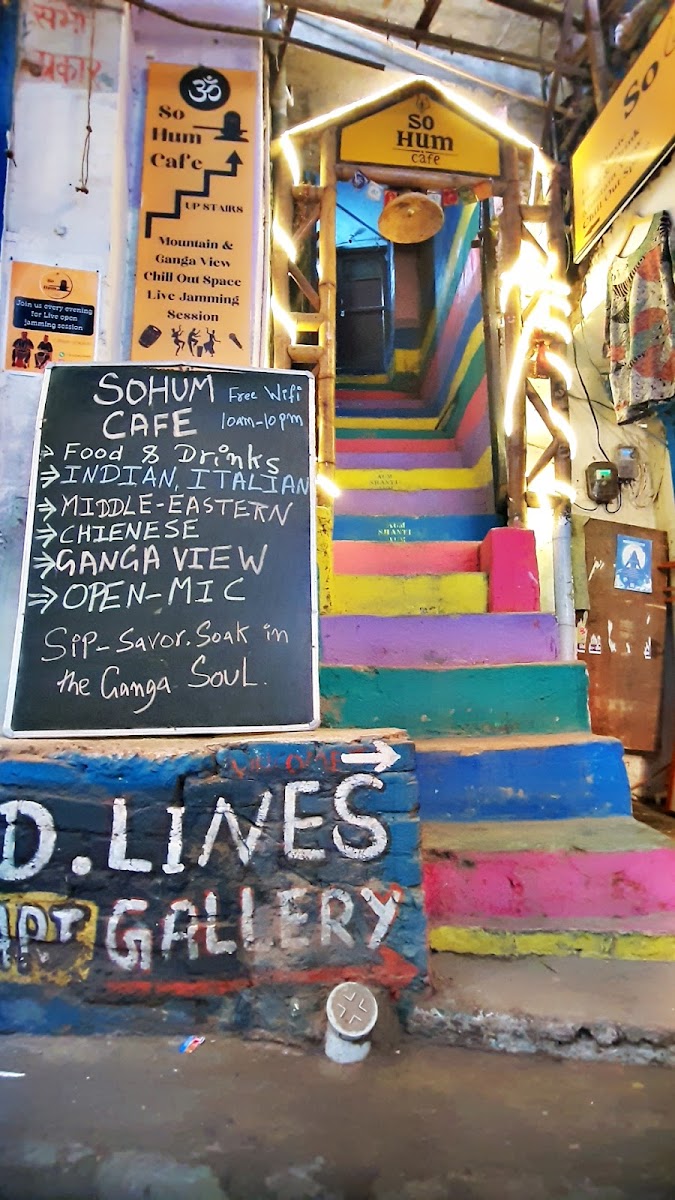 सभी
प्रकार
ॐ
So
Hum
Cafe
UP STAIRS
Mountain &
Ganga View
Chill Out Space
Live Jamming
Session
Join us every evening
for Live open
jamming session
So
Hum
cafe
So
Chill Out S
SOHUM
CAFE
Free Wifi
10am-10pm
Food & Drinks
INDIAN, ITALIAN
MIDDLE-EASTERN
CHIENESE
GANGA VIEW
OPEN-MIC
Sip-Savor.Soak in
the Ganga Soul.
AUM
SHANTI
AUM
SHANTI
AUM
D.LINES
ART GALLERY